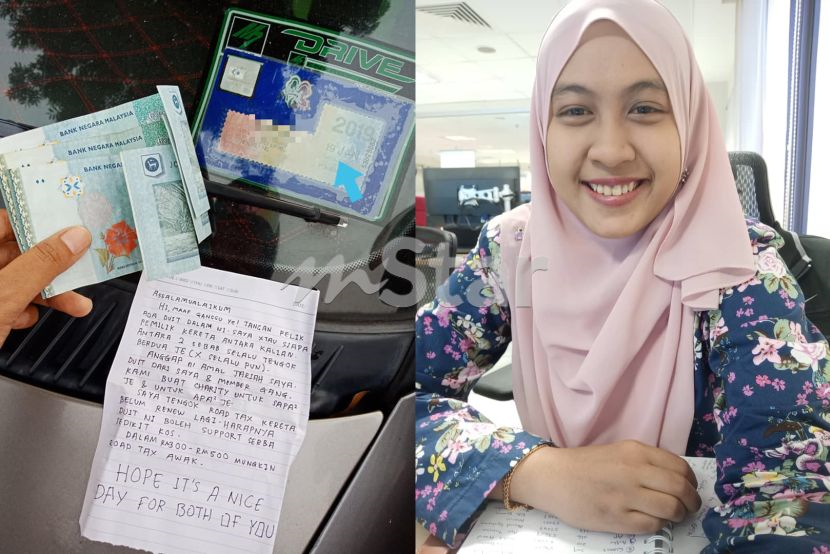 DRIVE
2019
BANK NEGARA MALAYSIA
BANK NEGARA MALAYSIA
BANK NEGARA
mStar
ASSALAMUALAIKUM
HI, MAAF GANGGU YE! JANGAN PELIK
ADA DUIT DALAM NI. SAYA XTAU SIAPA
PEMILIK KERETA ANTARA KALIAN
BERDUA SEBAB SELALU TENGOK
ANTARA 2 JE (X SELALU PUN).
ANGGAP NI AMAL JARIAH SAYA.
DUIT DARI SAYA & MEMBER GANG.
KAMI BUAT CHARITY UNTUK SAPA2
JE & UNTUK APA2 JE.
SAYA TENGOK ROAD TAX KERETA
BELUM RENEW LAGI. HARAPNYA
DUIT NI BOLEH SUPPORT SERBA
SEDIKIT KOS.
DALAM RM300 - RM500 MUNGKIN
ROAD TAX AWAK.
HOPE IT'S A NICE
DAY FOR BOTH OF YOU